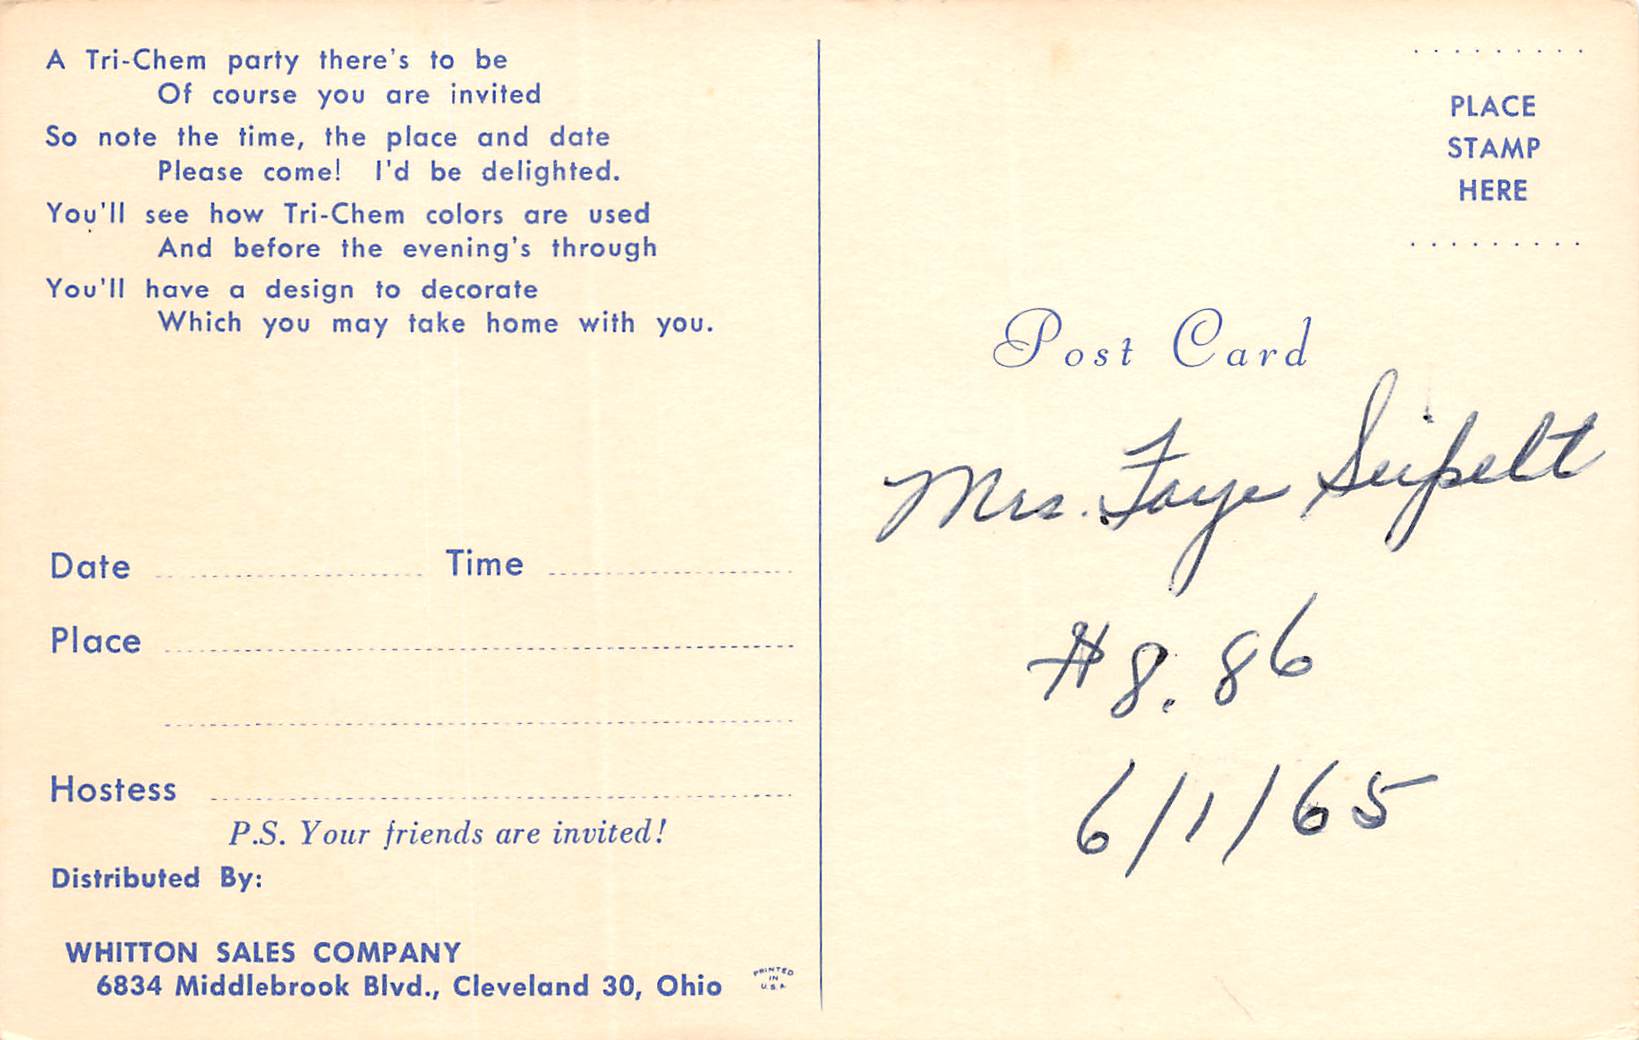 A Tri-Chem party there's to be
Of course you are invited
So note the time, the place and date
Please come! I'd be delighted.
You'll see how Tri-Chem colors are used
And before the evening's through
You'll have a design to decorate
Which you may take home with you.
Date Time
Place
Hostess
P.S. Your friends are invited!
Distributed By:
WHITTON SALES COMPANY
6834 Middlebrook Blvd., Cleveland 30, Ohio
PRINTED
IN
U.S.A.
PLACE
STAMP
HERE
Post Card
Mrs. Faye Seipelt
#8.86
6/1/65